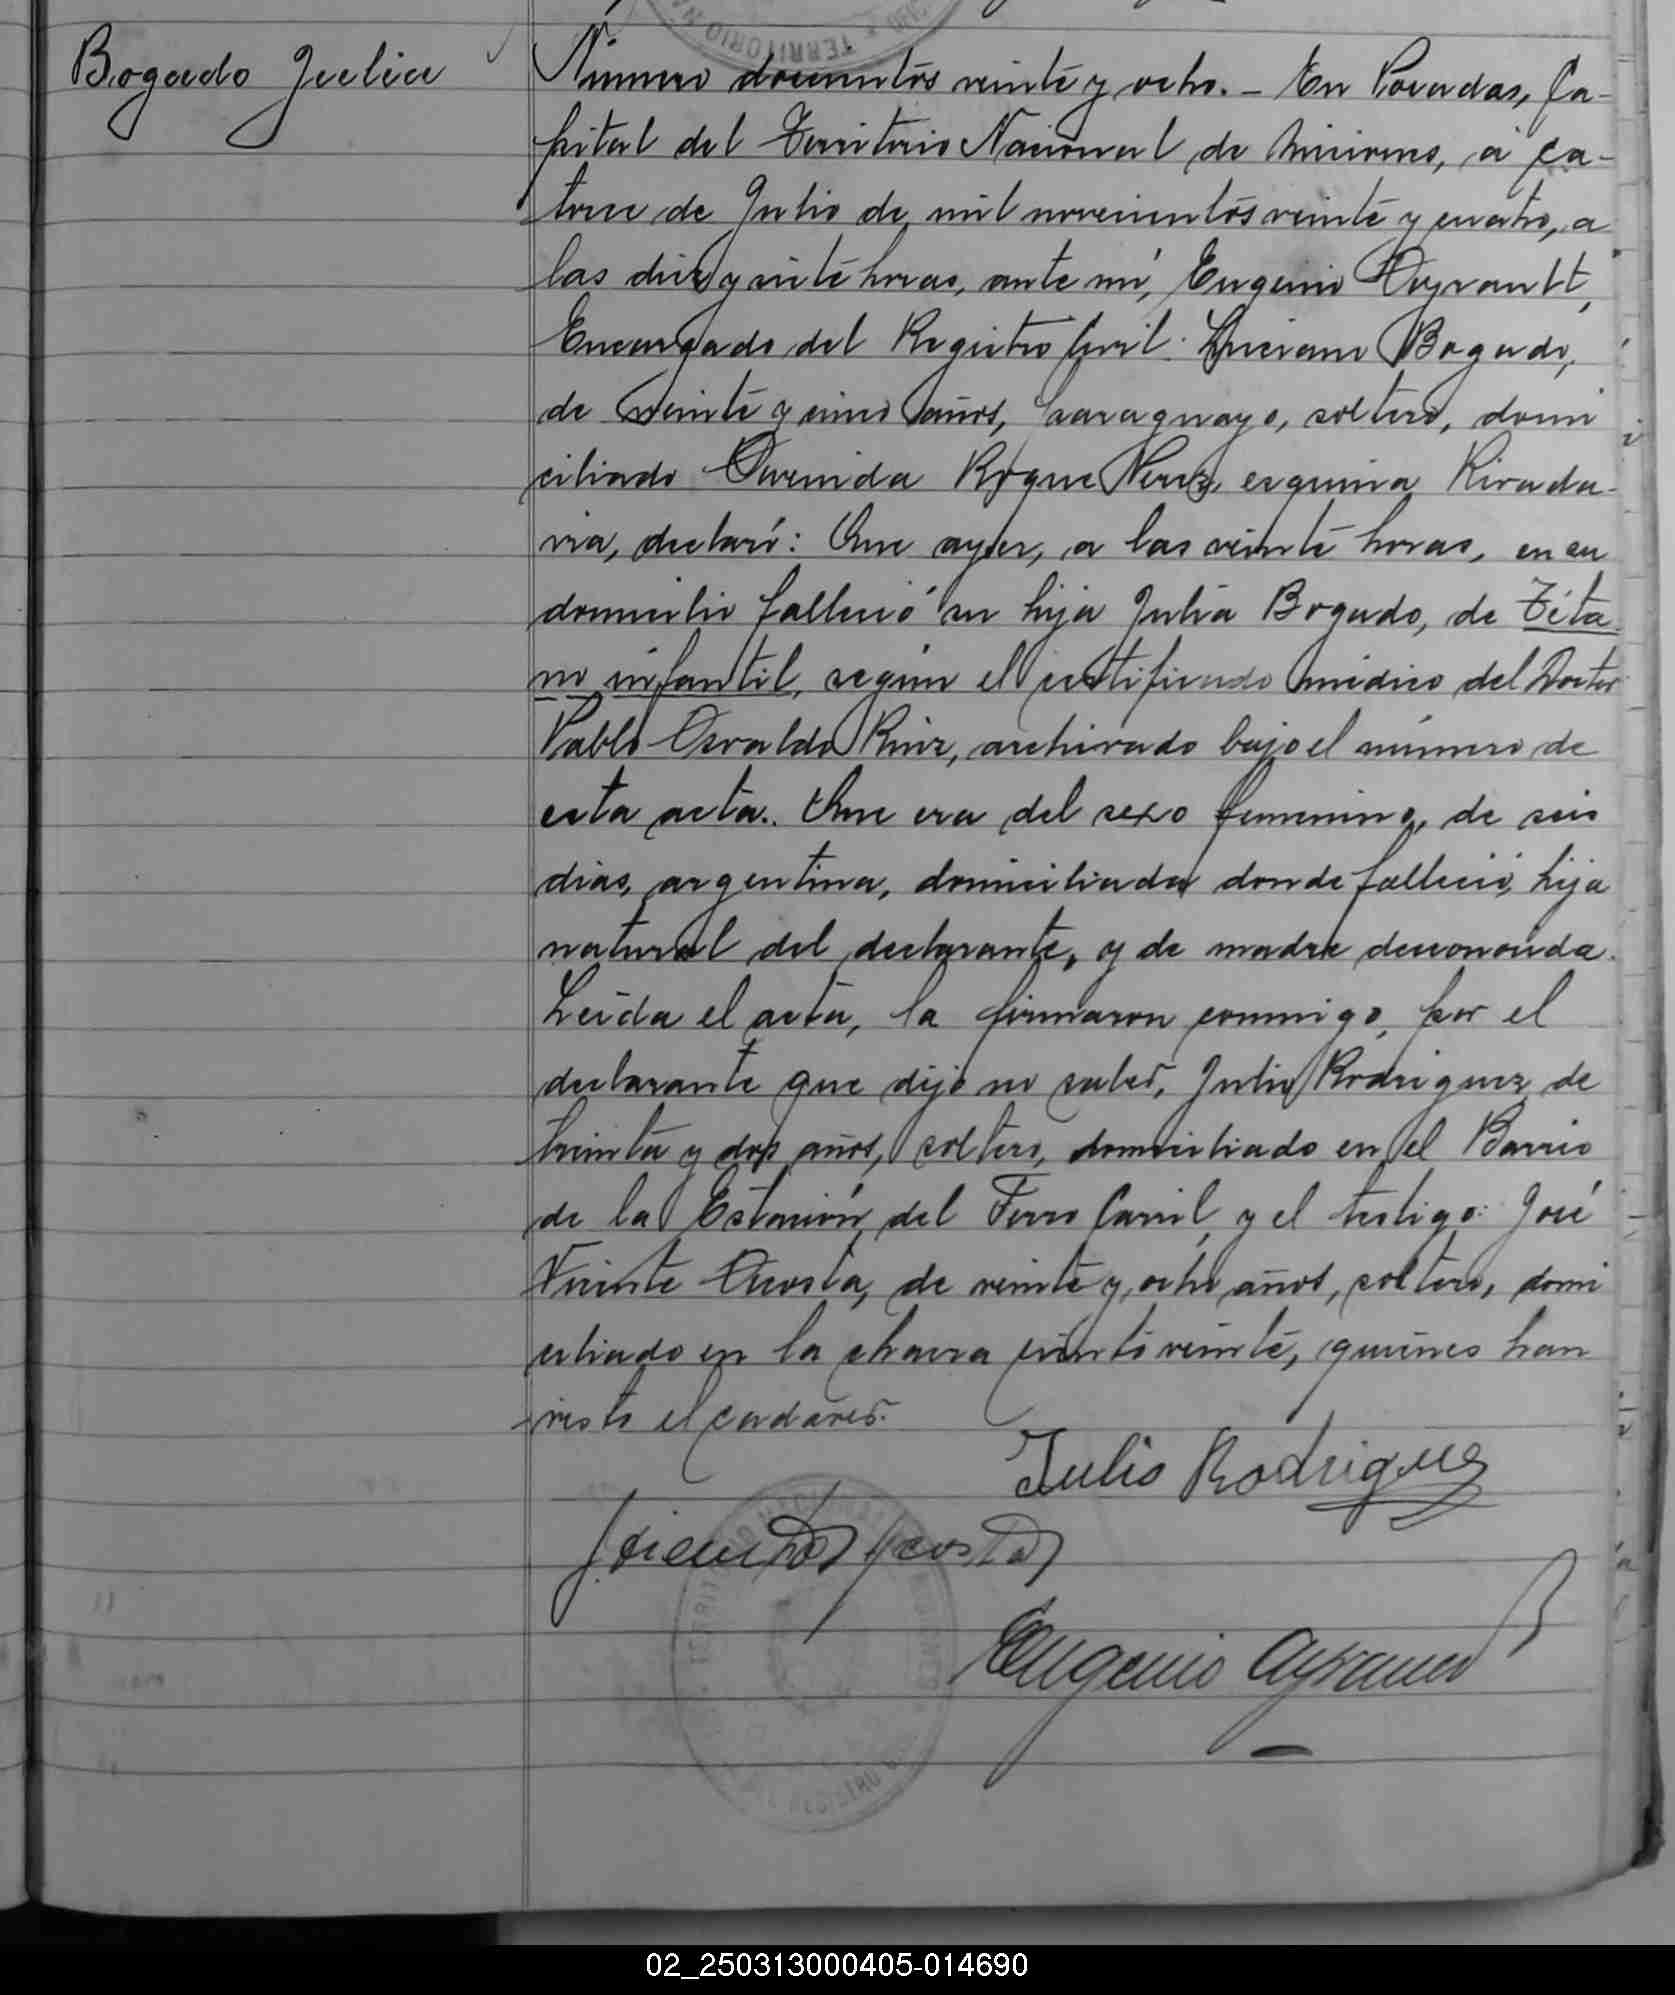 Bogado Julia
Número doscientos veinte y ocho.- En Posadas, Ca-
pital del Territorio Nacional de Misiones, a ca-
torce de Julio de mil novecientos veinte y cuatro, a
las diez y siete horas, ante mí, Eugenio Ayrault,
Encargado del Registro Civil: Luciano Bogado,
de veinte y cinco años, paraguayo, soltero, domi
ciliado Avenida Roque Perez, esquina Rivada-
via, declaró: Que ayer, a las veinte horas, en su
domicilio falleció su hija Julia Bogado, de Téta
no infantil, según el certificado médico del Doctor
Pablo Osvaldo Ruiz, archivado bajo el número de
esta acta. Que era del sexo femenino, de seis
dias, argentina, domiciliada donde falleció, hija
natural del declarante, y de madre desconocida.
Leída el acta, la firmaron conmigo, por el
declarante que dijo no saber, Julio Rodriguez, de
treinta y dos años, soltero, domiciliado en el Barrio
de la Estación del Ferro Carril, y el testigo: José
Vicente Acosta, de veinte y ocho años, soltero, domi
ciliado en la chacra ciento veinte, quienes han
visto el cadáver.
Julio Rodriguez
J Vicente Acosta
Eugenio Ayrault
02_250313000405-014690